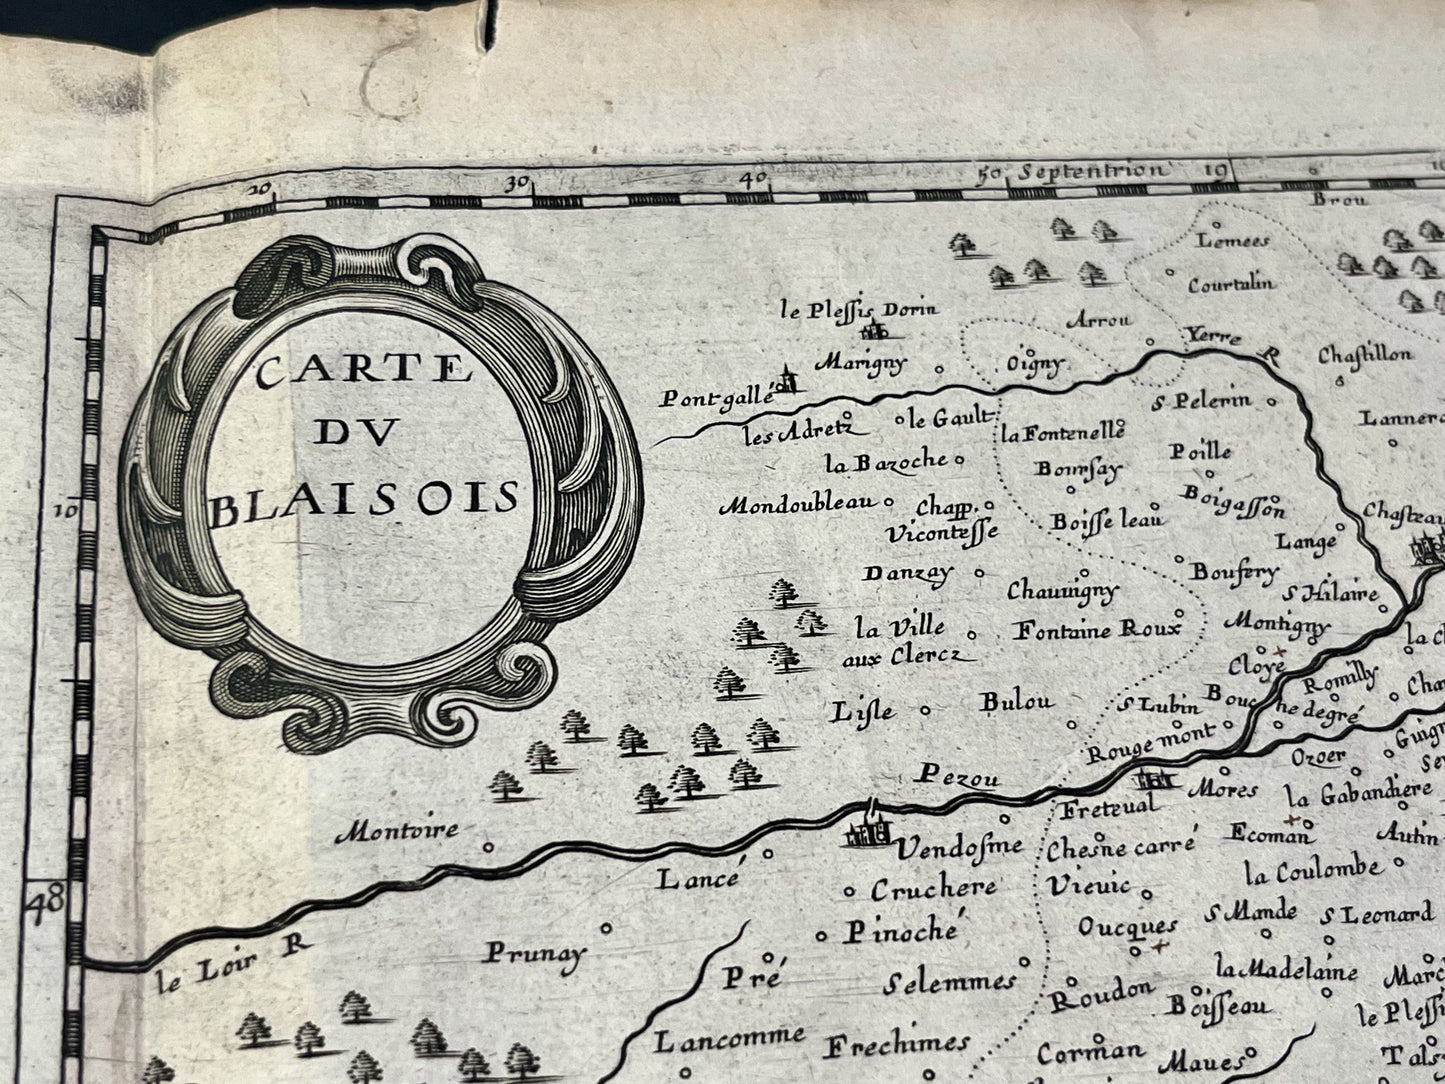 20 30 40 50 Septentrion 19 6
Brou
CARTE
DV
BLAISOIS
10
48
Lomees
Courtalin
le Plessis Dorin
Arrou
Yerre R
Marigny
Oigny
Chastillon
Pontgallé
S Pelerin
les Adretz
le Gault
la Fontenelle
Lannero
la Bazoche
Boursay
Poille
Mondoubleau
Chapp.
Vicontesse
Boisse leau
Boigasson
Chasteau
Lange
Danzay
Chauuigny
Boufery
S Hilaire
la Ville
aux Clercz
Fontaine Roux
Montigny
Cloye
Romilly
Lisle
Bulou
S Lubin
Bouche degré
Rougemont
Ozoer
Pezou
Freteual
Mores
la Gabandiere
Montoire
Vendosme
Chesne carré
Ecoman
Autin
Lancé
Cruchere
Vieuic
la Coulombe
Pinoché
Oucques
S Mande
S Leonard
le Loir R
Prunay
Pré
Selemmes
Roudon
la Madelaine
Boisseau
le Plessi
Lancomme
Frechimes
Corman
Maues
Tals